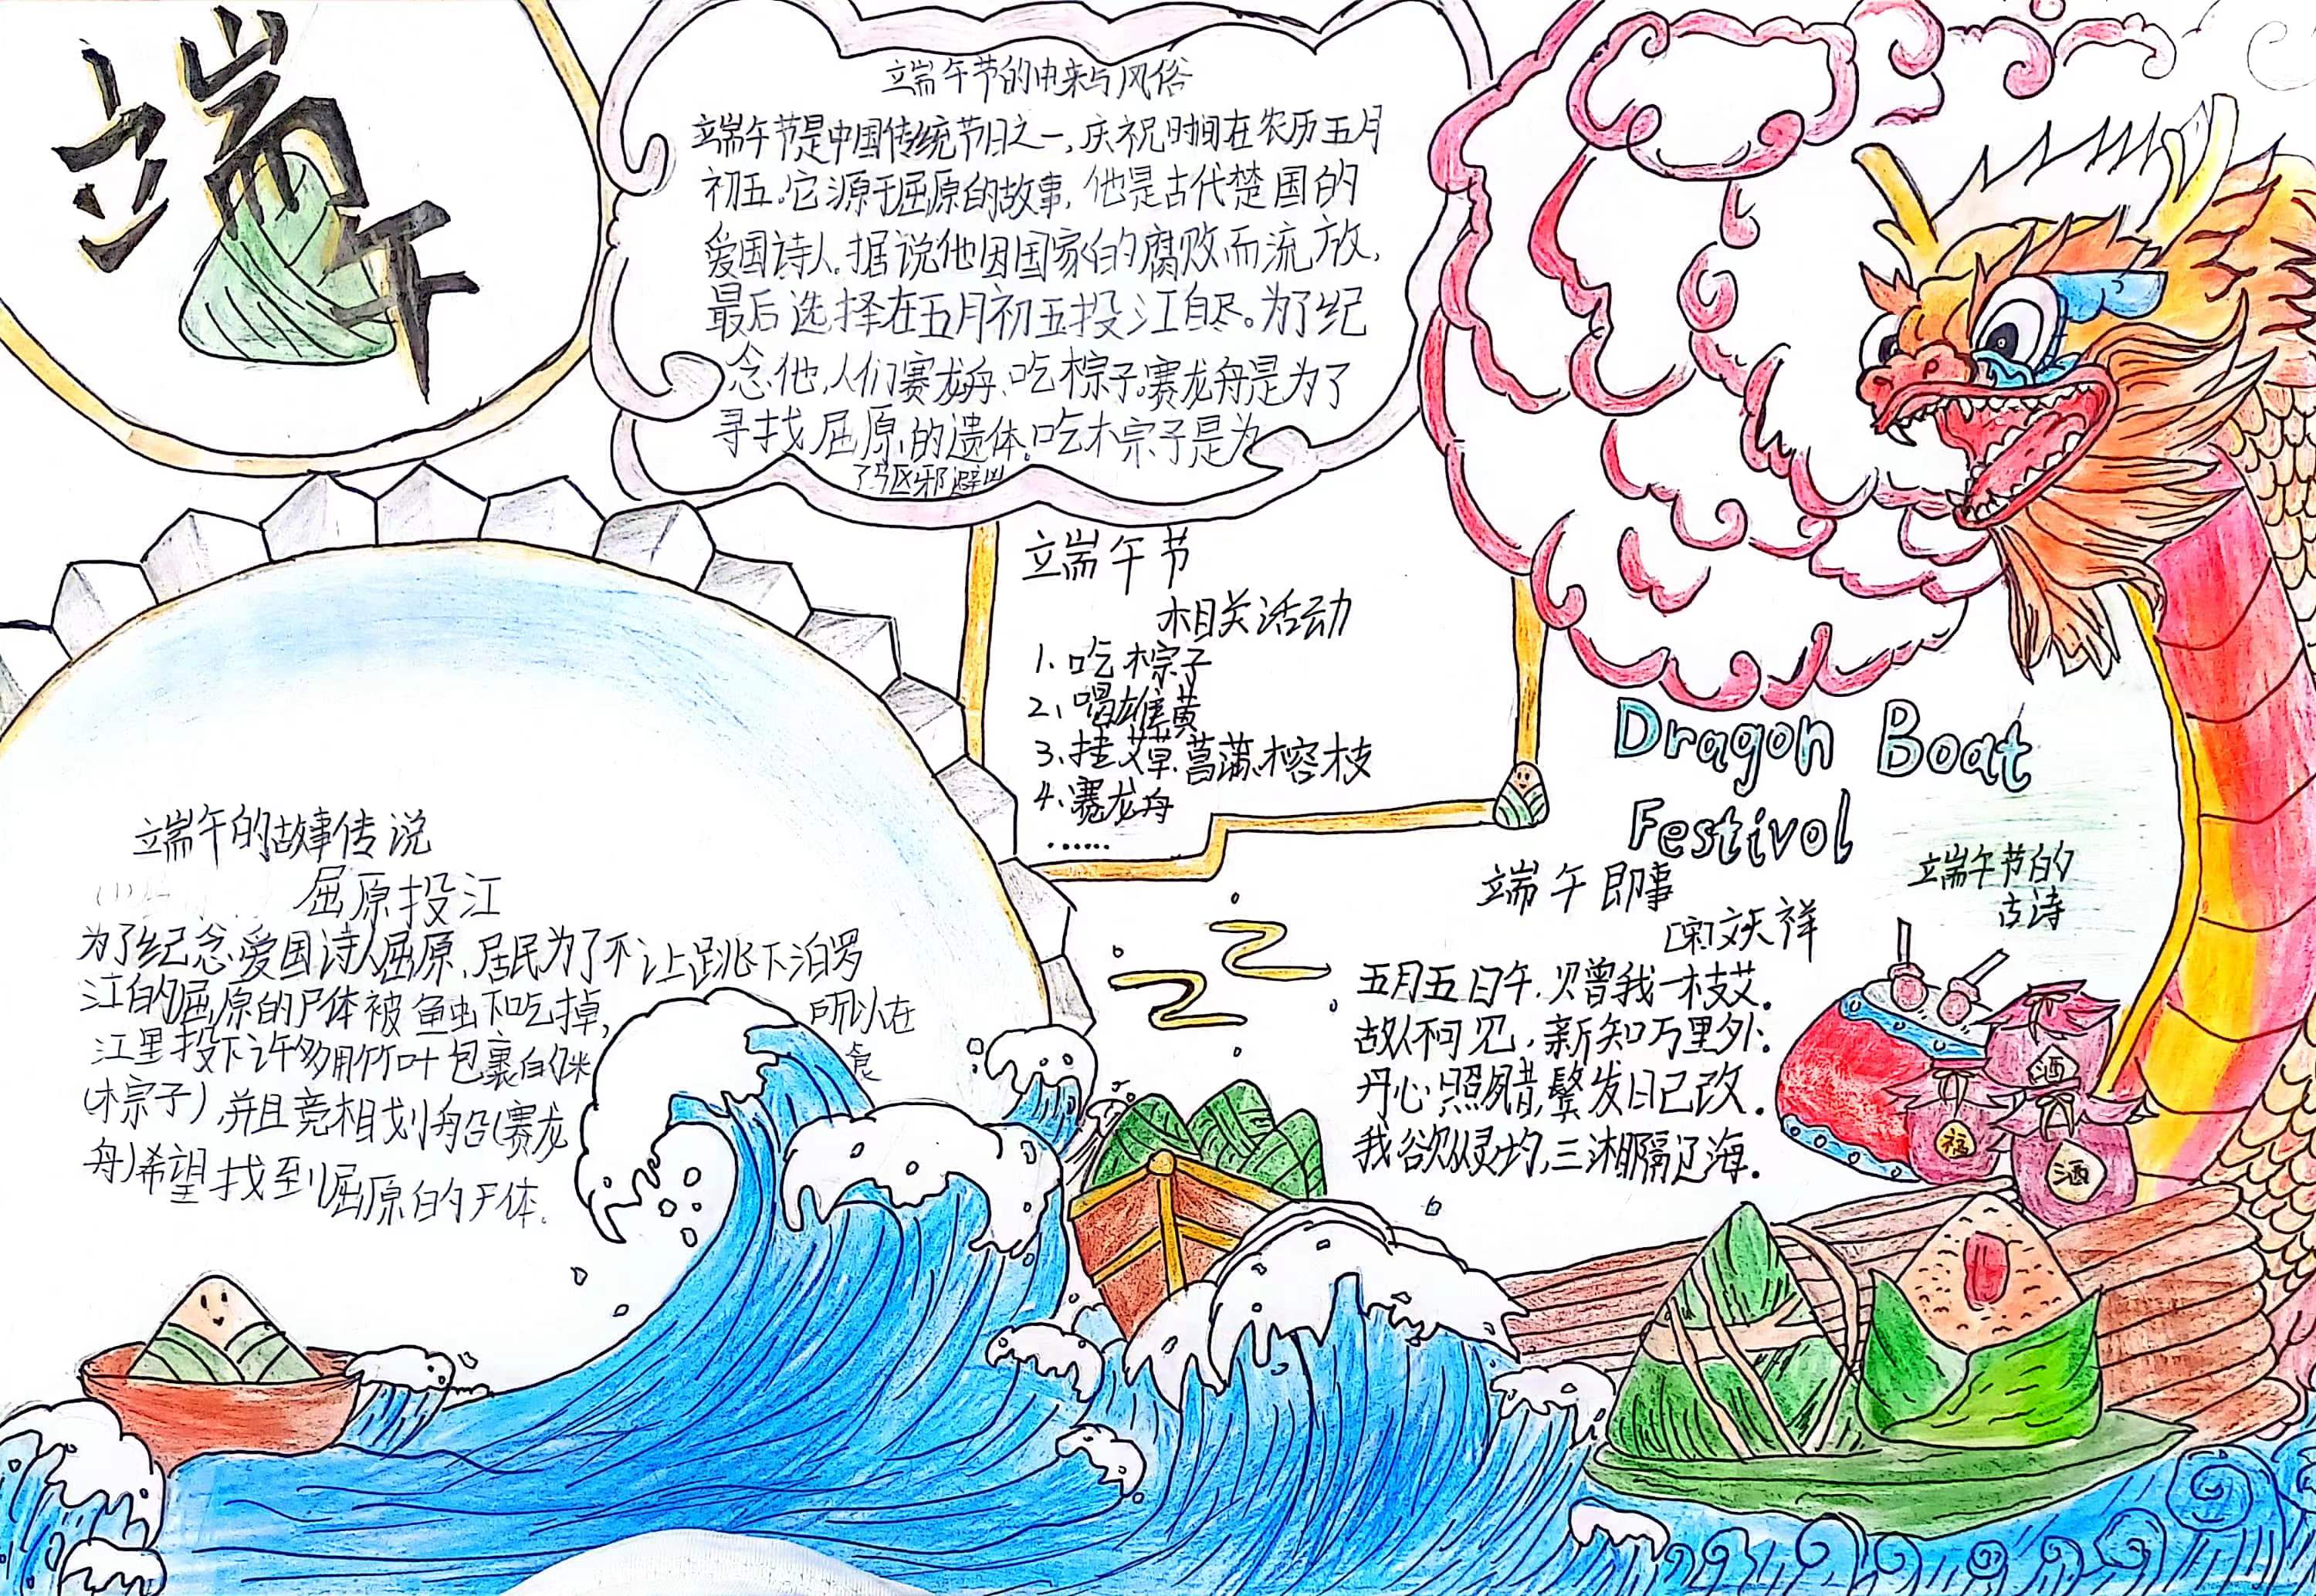 端午
端午节的由来与风俗
端午节是中国传统节日之一,庆祝时间在农历五月
初五。它源于屈原的故事,他是古代楚国的
爱国诗人。据说他因国家的腐败而流放,
最后选择在五月初五投江自尽。为了纪
念他,人们赛龙舟、吃粽子。赛龙舟是为了
寻找屈原的遗体。吃粽子是为
了驱邪避凶
端午节
相关活动
1. 吃粽子
2. 喝雄黄
3. 挂艾草、菖蒲、榕枝
4. 赛龙舟
......
Dragon Boat
Festivol
端午节的
古诗
端午即事
[宋]文天祥
五月五日午,赠我一枝艾。
故人不可见,新知万里外。
丹心照夙昔,鬓发日已改。
我欲从灵均,三湘隔辽海。
酒
福
酒
端午的故事传说
屈原投江
为了纪念爱国诗人屈原,居民为了不让跳下泊罗
江的屈原的尸体被鱼虫下吃掉,所以在
江里投下许多用竹叶包裹的米食
(粽子),并且竞相划船(赛龙
舟)希望找到屈原的尸体。